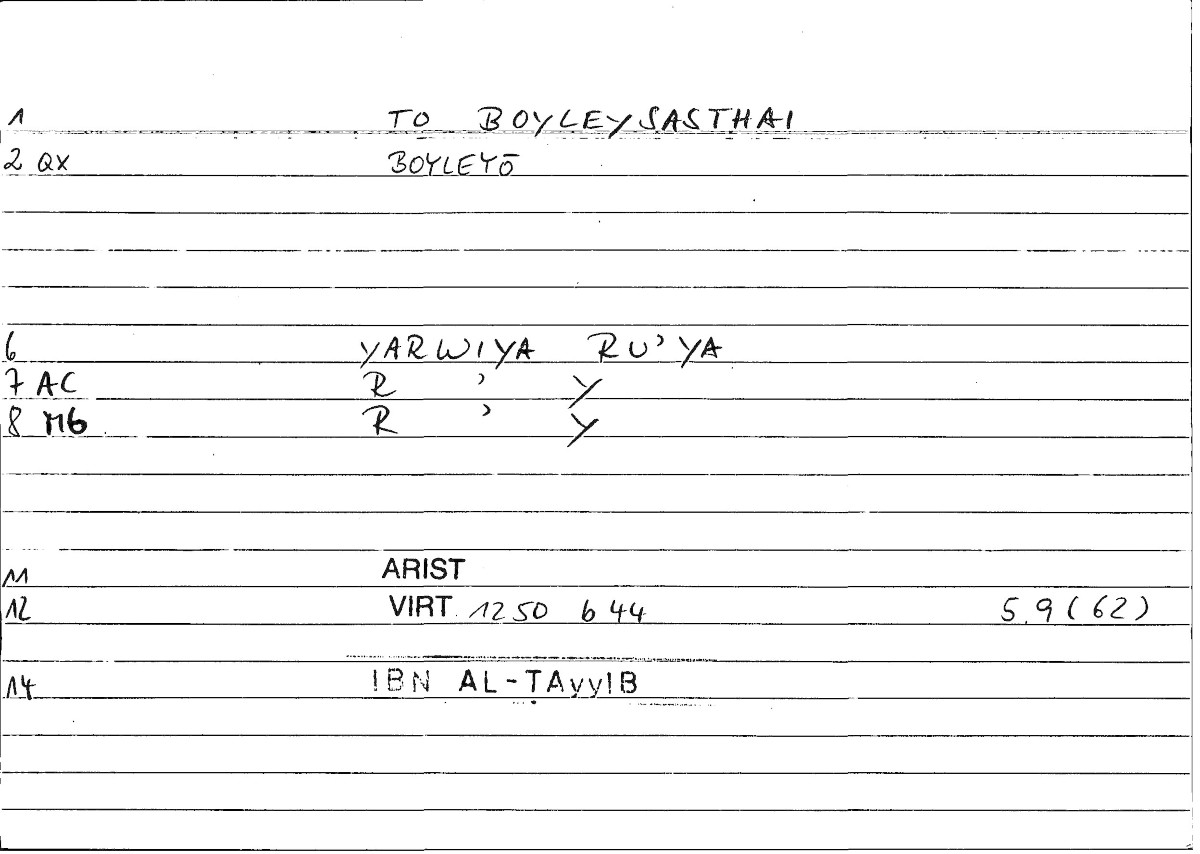 1 TO BOYLEYSASTHAI
2 QX BOYLEYŌ
6 YARWIYA RU’YA
7 AC R ’ Y
8 M6 R ’ Y
11 ARIST
12 VIRT. 1250 b 44 5.9(62)
14 IBN AL-ṬAyyIB